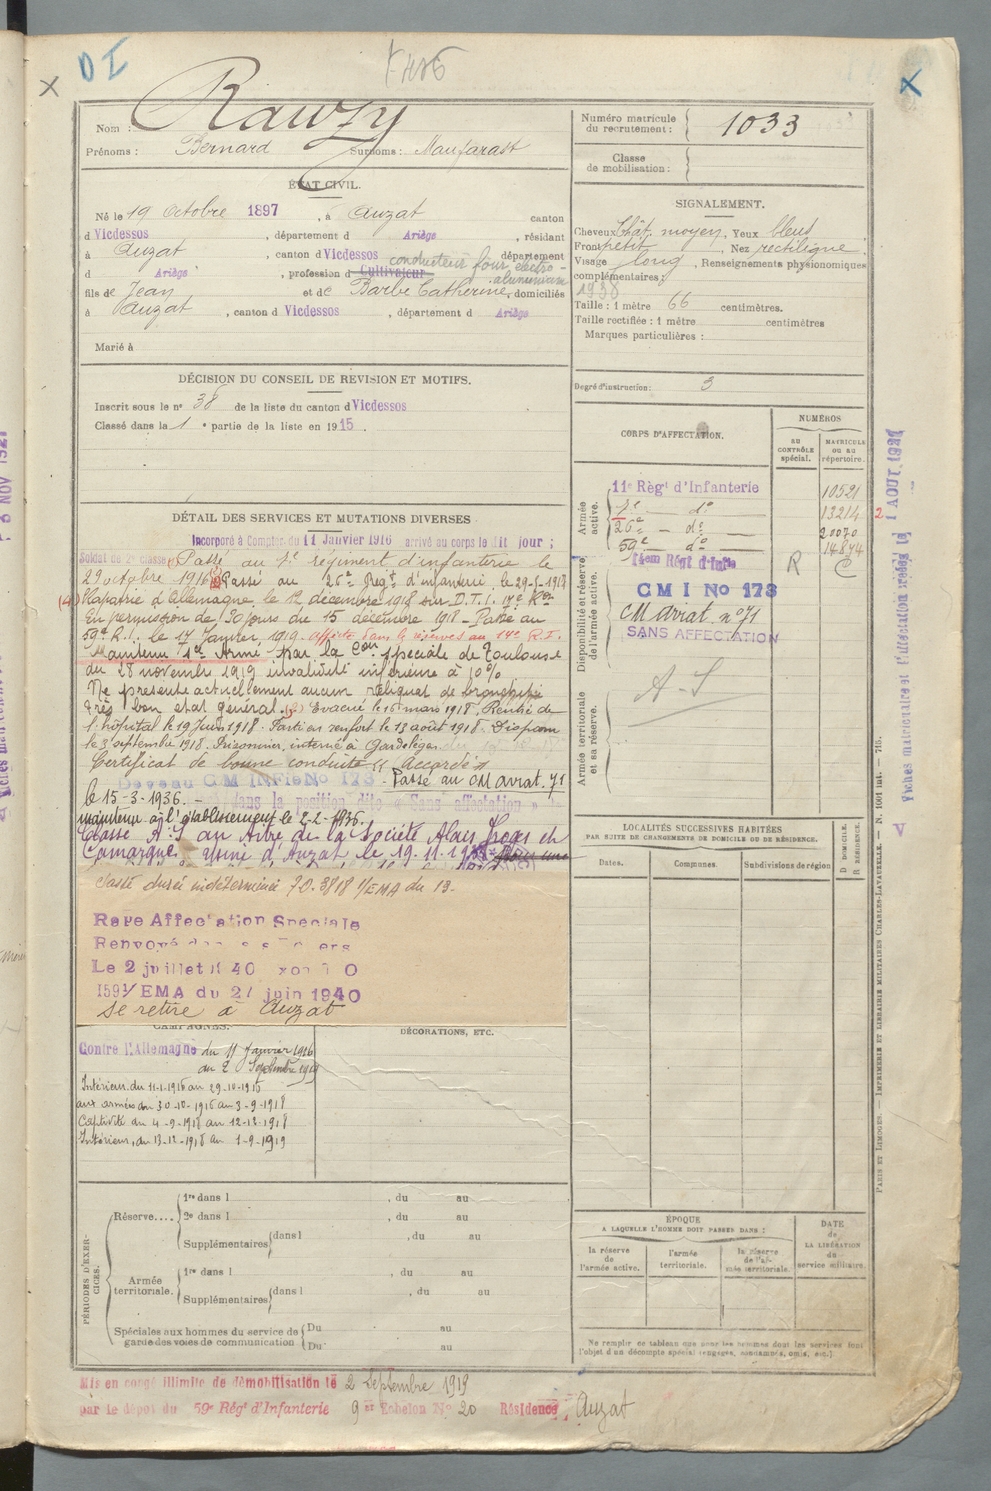 D I
Nom : Rauzy
Prénoms : Bernard Surnoms : Maufarast
ÉTAT CIVIL.
Né le 19 Octobre 1897, à Auzat canton
d Vicdessos, département d Ariège, résidant
à Auzat, canton d Vicdessos département
d Ariège, profession d Cultivateur conducteur four électro-
aluminium
fils de Jean et de Barbe Catherine, domiciliés
à Auzat, canton d Vicdessos, département d Ariège
Marié à
DÉCISION DU CONSEIL DE RÉVISION ET MOTIFS.
Inscrit sous le n° 38 de la liste du canton d Vicdessos
Classé dans la 1 e partie de la liste en 1915.
DÉTAIL DES SERVICES ET MUTATIONS DIVERSES
Incorporé à Compter du 11 Janvier 1916 arrivé au corps le dit jour ;
Soldat de 2e classe Passé au 7e régiment d'infanterie le
29 octobre 1916 Passé au 26e Regt d'infanterie le 29-5-1918
(4) Rapatrié d'Allemagne le 12 décembre 1918 sur D.T.I. 17e Ron
En permission de 30 jours du 15 décembre 1918 - Passé au
59e R.I. le 17 Janvier 1919 - affecté dans les réserves au 14e R.I.
Maintenu Sce Armé par la Con spéciale de Toulouse
du 28 novembre 1919 invalidité inférieure à 10%
Ne présente actuellement aucun reliquat de bronchite
très bon état général. (2) Evacué le 16 mars 1918, Rentré de
l'hôpital le 19 Juin 1918. Parti en renfort le 13 août 1918. Disparu
le 3 septembre 1918. Prisonnier, interné à Gardelegen
Certificat de bonne conduite "Accordé"
Devenu C M INFie No 173 - Passé au CM aviat. 71
le 15-3-1936. -
dans la position dite « Sans affectation »
maintenu à l'établissement le 2-2-1936.
Classé A.S au titre de la Société Alais Froges et
Camargue Usine d'Auzat le 19.11.19 Pour une
durée indéterminée 7D.3818 1/EMA du 13.
Rayé Affectation Spéciale
Renvoyé dans ses Foyers
Le 2 juillet 1940
1591/EMA du 27 juin 1940
se retire à Auzat
CAMPAGNES.
Contre l'Allemagne du 11 Janvier 1916
au 2 Septembre 1919
Intérieur du 11-1-1916 au 29-10-1916
aux armées du 30-10-1916 au 3-9-1918
Captivité du 4-9-1918 au 12-12-1918
Intérieur, du 13-12-1918 au 1-9-1919
DÉCORATIONS, ETC.
PÉRIODES D'EXERCICES.
Réserve....
1re dans l , du au
2e dans l , du au
Supplémentaires dans l , du au
Armée territoriale.
1re dans l , du au
Supplémentaires dans l , du au
Spéciales aux hommes du service de garde des voies de communication
Du au
Du au
Mis en congé illimité de démobilisation le 2 Septembre 1919
par le dépôt du 59e Régt d'Infanterie 9 e Echelon N° 20 Résidence Auzat
Numéro matricule du recrutement : 1033
Classe de mobilisation :
SIGNALEMENT.
Cheveux Chât. moyen, Yeux bleus
Front petit, Nez rectiligne
Visage long, Renseignements physionomiques
complémentaires :
1938
Taille : 1 mètre 66 centimètres.
Taille rectifiée : 1 mètre centimètres
Marques particulières :
Degré d'instruction : 3
CORPS D'AFFECTATION.
NUMÉROS
AU CONTRÔLE spécial.
MATRICULE OU AU répertoire.
Armée active.
11e Régt d'Infanterie 10521
7e — do 13214 2
26e — do 20070
59e do 14874
Disponibilité et réserve de l'armée active.
14eme Régt d'Infie R C
C M I No 173
CM Aviat. n° 71
SANS AFFECTATION
Armée territoriale et sa réserve.
A - S
LOCALITÉS SUCCESSIVES HABITÉES
PAR SUITE DE CHANGEMENTS DE DOMICILE OU DE RÉSIDENCE.
Dates. Communes. Subdivisions de région
D DOMICILE.
R RÉSIDENCE.
ÉPOQUE
A LAQUELLE L'HOMME DOIT PASSER DANS :
la réserve de l'armée active.
l'armée territoriale.
la réserve de l'armée territoriale.
DATE de LA LIBÉRATION du service militaire.
Ne remplir ce tableau que pour les hommes dont les services font
l'objet d'un décompte spécial (engagés, condamnés, omis, etc.).
PARIS ET LIMOGES. — IMPRIMERIE ET LIBRAIRIE MILITAIRES CHARLES-LAVAUZELLE. — N. 1001 int. — 715.